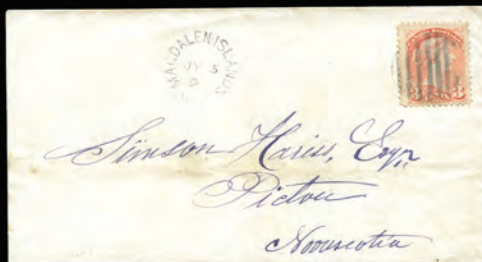 MAGDALEN·ISLANDS
JY 5
Simson Hariss, Esqr.
Pictou
Novascotia